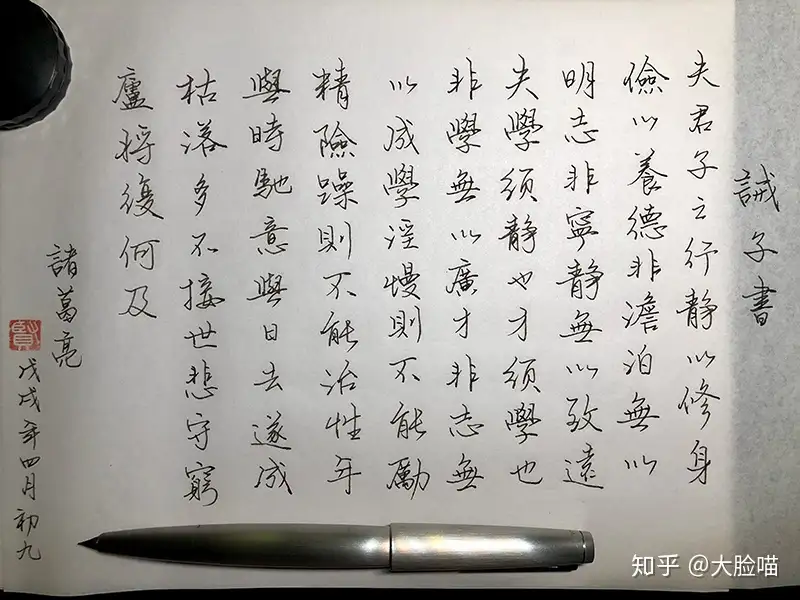 誡子書
夫君子之行靜以修身
儉以養德非澹泊無以
明志非寧靜無以致遠
夫學須靜也才須學也
非學無以廣才非志無
以成學淫慢則不能勵
精險躁則不能治性年
與時馳意與日去遂成
枯落多不接世悲守窮
廬將復何及
諸葛亮
戊戌年四月初九
知乎 @大脸喵